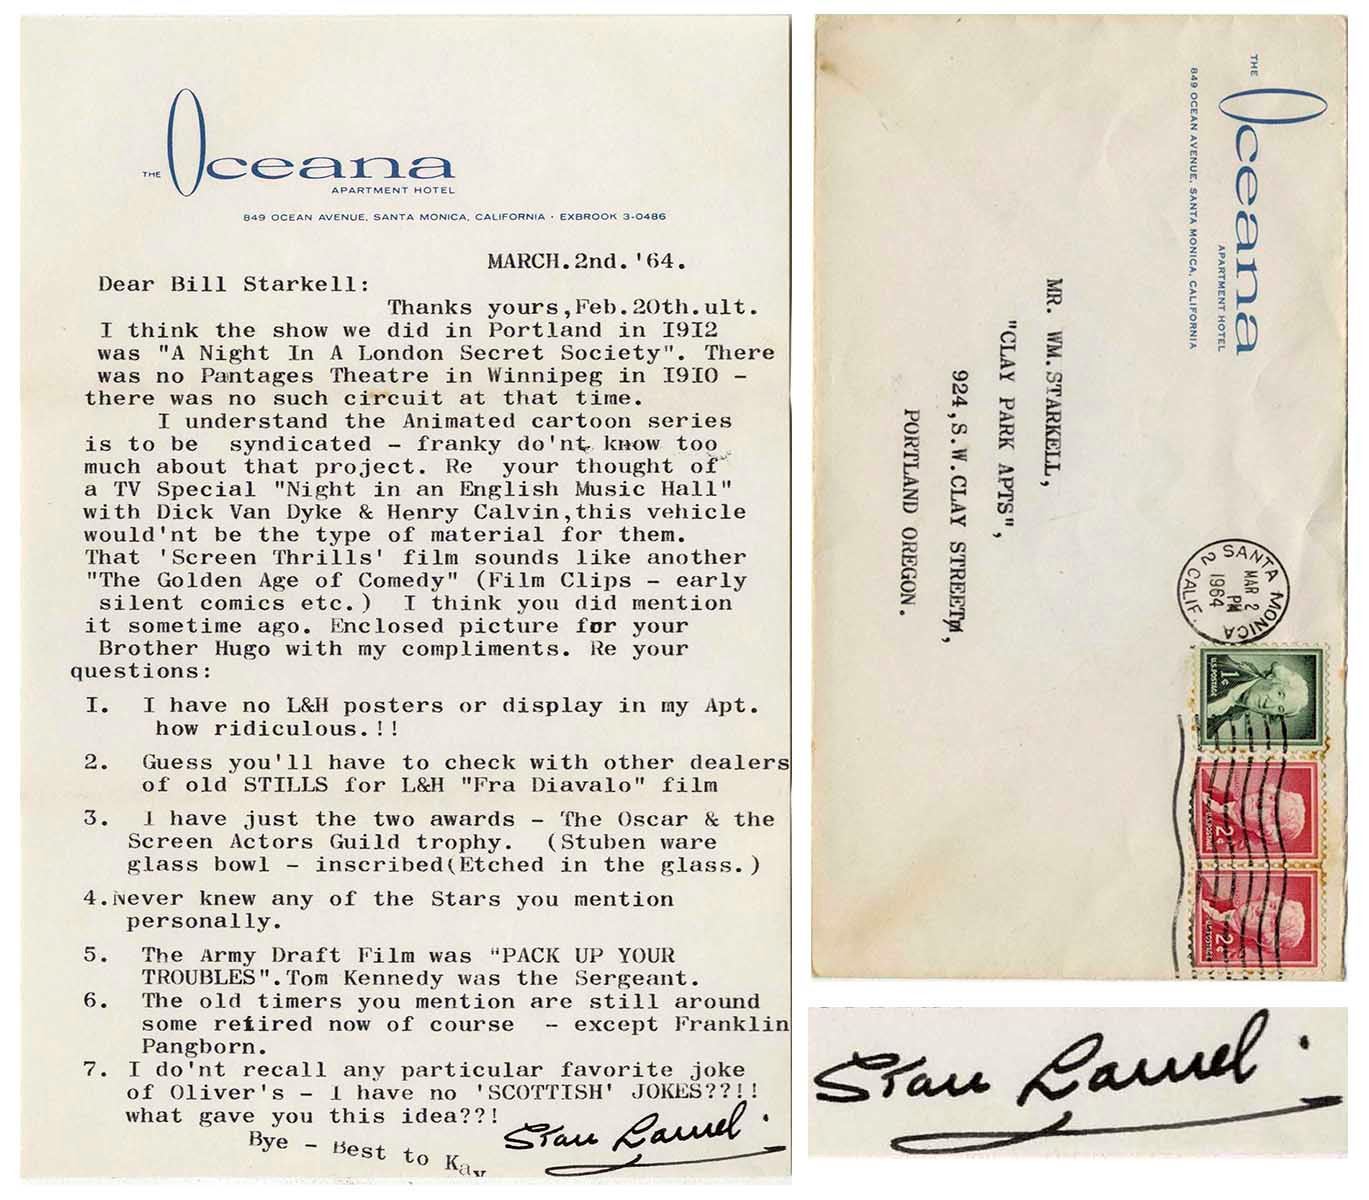 THE Oceana
APARTMENT HOTEL
849 OCEAN AVENUE, SANTA MONICA, CALIFORNIA · EXBROOK 3-0486
MARCH.2nd.'64.
Dear Bill Starkell:
Thanks yours,Feb.20th.ult.
I think the show we did in Portland in I9I2
was "A Night In A London Secret Society". There
was no Pantages Theatre in Winnipeg in I9IO -
there was no such circuit at that time.
I understand the Animated cartoon series
is to be syndicated - franky do'nt know too
much about that project. Re your thought of
a TV Special "Night in an English Music Hall"
with Dick Van Dyke & Henry Calvin,this vehicle
would'nt be the type of material for them.
That 'Screen Thrills' film sounds like another
"The Golden Age of Comedy" (Film Clips - early
silent comics etc.) I think you did mention
it sometime ago. Enclosed picture for your
Brother Hugo with my compliments. Re your
questions:
I. I have no L&H posters or display in my Apt.
how ridiculous.!!
2. Guess you'll have to check with other dealers
of old STILLS for L&H "Fra Diavalo" film
3. I have just the two awards - The Oscar & the
Screen Actors Guild trophy. (Stuben ware
glass bowl - inscribed(Etched in the glass.)
4.Never knew any of the Stars you mention
personally.
5. The Army Draft Film was "PACK UP YOUR
TROUBLES".Tom Kennedy was the Sergeant.
6. The old timers you mention are still around
some retired now of course - except Franklin
Pangborn.
7. I do'nt recall any particular favorite joke
of Oliver's - I have no 'SCOTTISH' JOKES??!!
what gave you this idea??!
Bye - Best to Kay
Stan Laurel.
THE Oceana
APARTMENT HOTEL
849 OCEAN AVENUE, SANTA MONICA, CALIFORNIA
MR. WM.STARKELL,
"CLAY PARK APTS",
924,S.W.CLAY STREET,
PORTLAND OREGON.
SANTA MONICA
2 CALIF.
MAR 2
PM
1964
1¢
U.S.POSTAGE
2¢
U.S.POSTAGE
2¢
U.S.POSTAGE
Stan Laurel.